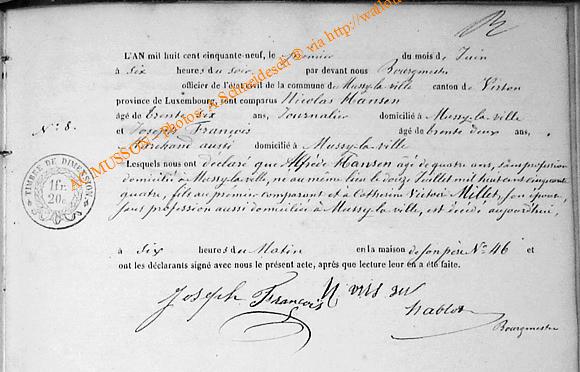 L'AN mil huit cent cinquante-neuf, le premier du mois de Juin
à six heures du soir par devant nous Bourgmestre
officier de l'état civil de la commune de Mussy-la-ville canton de Virton
province de Luxembourg, sont comparus Nicolas Hansen
âgé de trente six ans, Journalier domicilié à Mussy-la-ville
N° 8.
et Joseph François âgé de trente deux ans,
domicilié à Mussy-la-ville
Lesquels nous ont déclaré que Alfrède Hansen agé de quatre ans, sans profession
domicilié à Mussy-la-ville, né au même lieu le douze Juillet mil huit cent cinquante
quatre, fils du premier comparant et à Catherine Victoire Millet, son épouse,
sans profession aussi domiciliée à Mussy-la-ville, est décédé aujourd'hui,
à six heures du Matin en la maison de son père N° 46 et
ont les déclarants signé avec nous le présent acte, après que lecture leur en a été faite.
Joseph François
Bourgmestre
TIMBRE DE DIMENSION
1 Fr.
20 c.
MUSSON - Photos: A. Schneidesch © via http://wallon